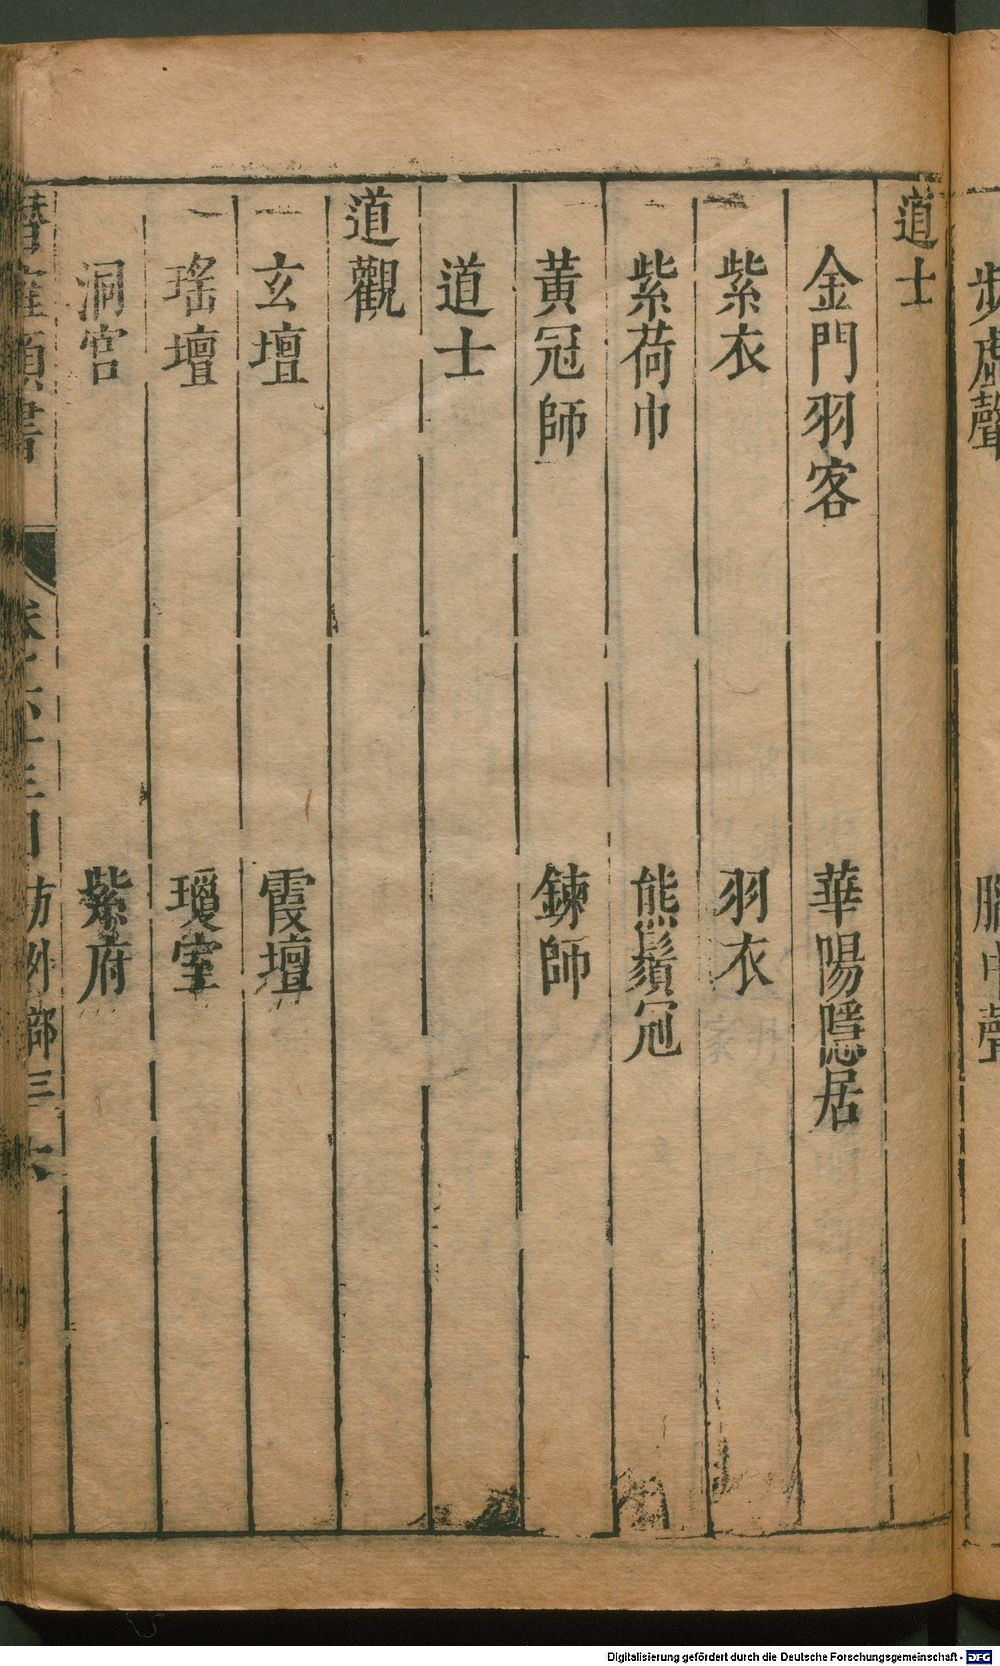 步虛聲　　　　
道士
金門羽客　華陽隱居
紫衣　羽衣
紫荷巾　熊鬚冠
黃冠師　鍊師
道士
道觀
玄壇　霞壇
瑤壇　瓊室
洞宮　紫府
潛確類書　卷之六十三　方外部三　六
Digitalisierung gefördert durch die Deutsche Forschungsgemeinschaft - DFG